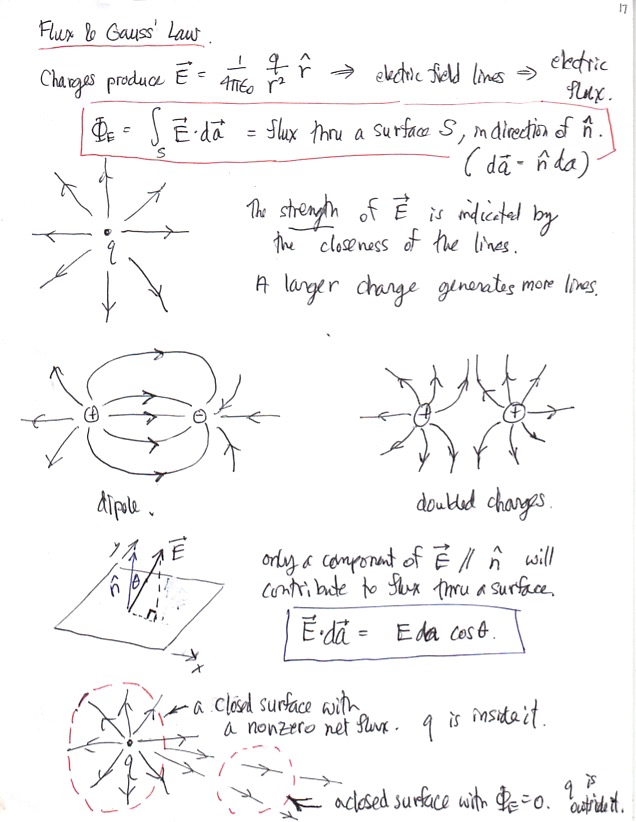 17
Flux & Gauss' Law.
Charges produce E⃗ = 1/4πε₀ q/r² r̂ ⇒ electric field lines ⇒ electric flux.
Φ_E = ∫_S E⃗·da⃗ = flux thru a surface S, in direction of n̂.
(da⃗ = n̂ da)
q
The strength of E⃗ is indicated by
the closeness of the lines.
A larger charge generates more lines.
+ −
+ +
dipole.
doubled charges.
y E⃗
n̂ θ
x
only a component of E⃗ // n̂ will
contribute to flux thru a surface.
E⃗·da⃗ = E da cosθ.
a closed surface with
a nonzero net flux. q is inside it.
q
a closed surface with Φ_E = 0. q is outside it.